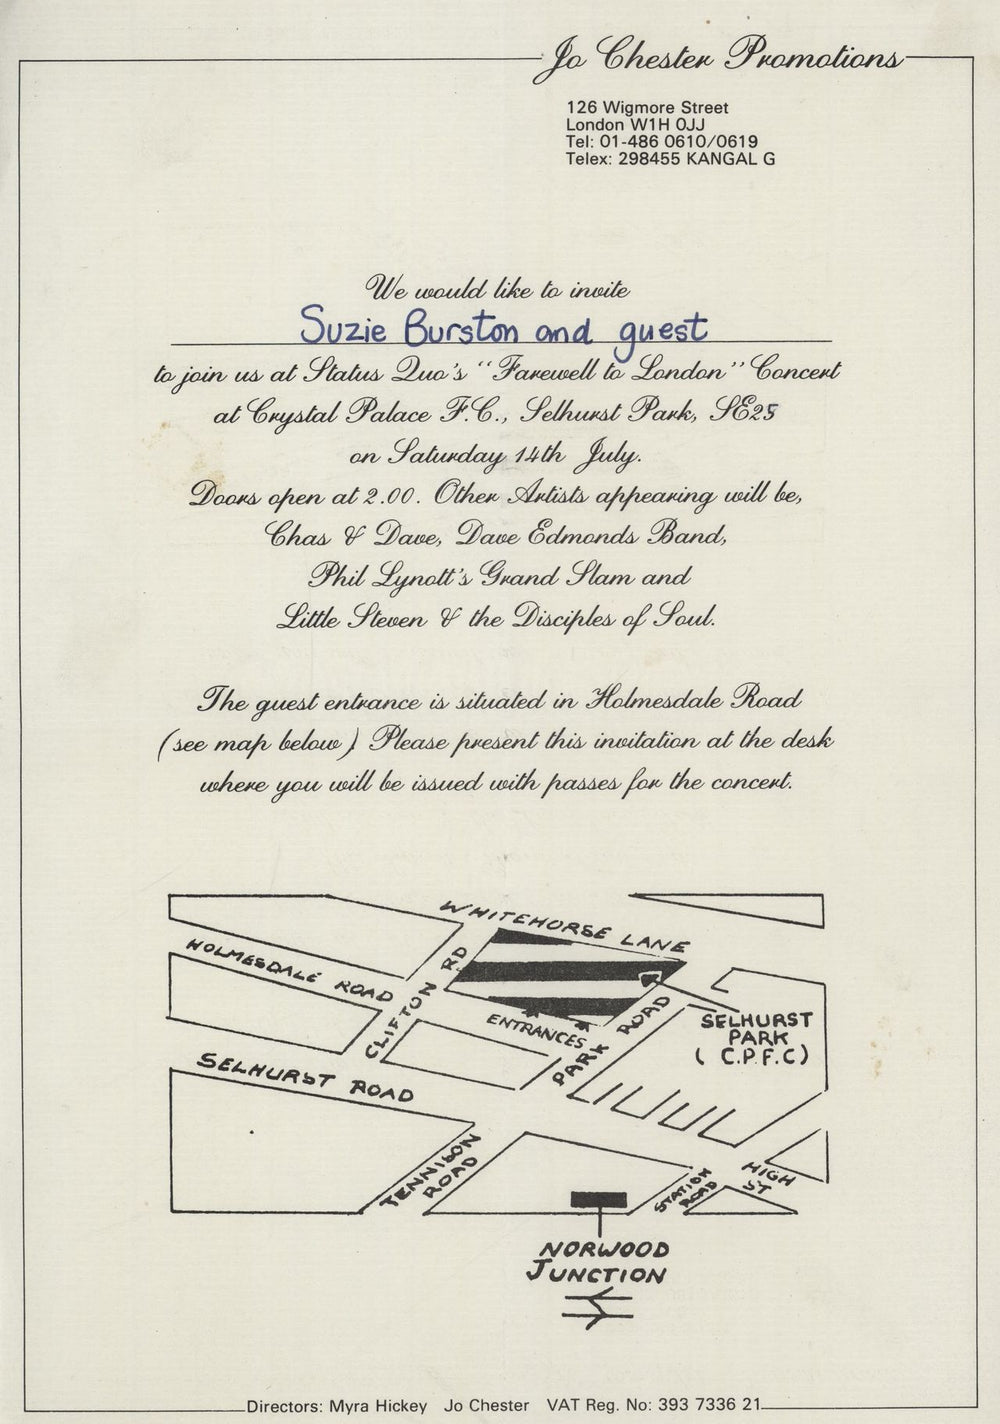 Jo Chester Promotions
126 Wigmore Street
London W1H 0JJ
Tel: 01-486 0610/0619
Telex: 298455 KANGAL G
We would like to invite
Suzie Burston and guest
to join us at Status Quo's "Farewell to London" Concert
at Crystal Palace F.C., Selhurst Park, SE25
on Saturday 14th July.
Doors open at 2.00. Other Artists appearing will be,
Chas & Dave, Dave Edmonds Band,
Phil Lynott's Grand Slam and
Little Steven & the Disciples of Soul.
The guest entrance is situated in Holmesdale Road
(see map below) Please present this invitation at the desk
where you will be issued with passes for the concert.
WHITEHORSE LANE
HOLMESDALE ROAD
CLIFTON RD
ENTRANCES
PARK ROAD
SELHURST
PARK
( C.P.F.C)
SELHURST ROAD
TENNISON
ROAD
STATION
ROAD
HIGH
ST
NORWOOD
JUNCTION
Directors: Myra Hickey Jo Chester VAT Reg. No: 393 7336 21